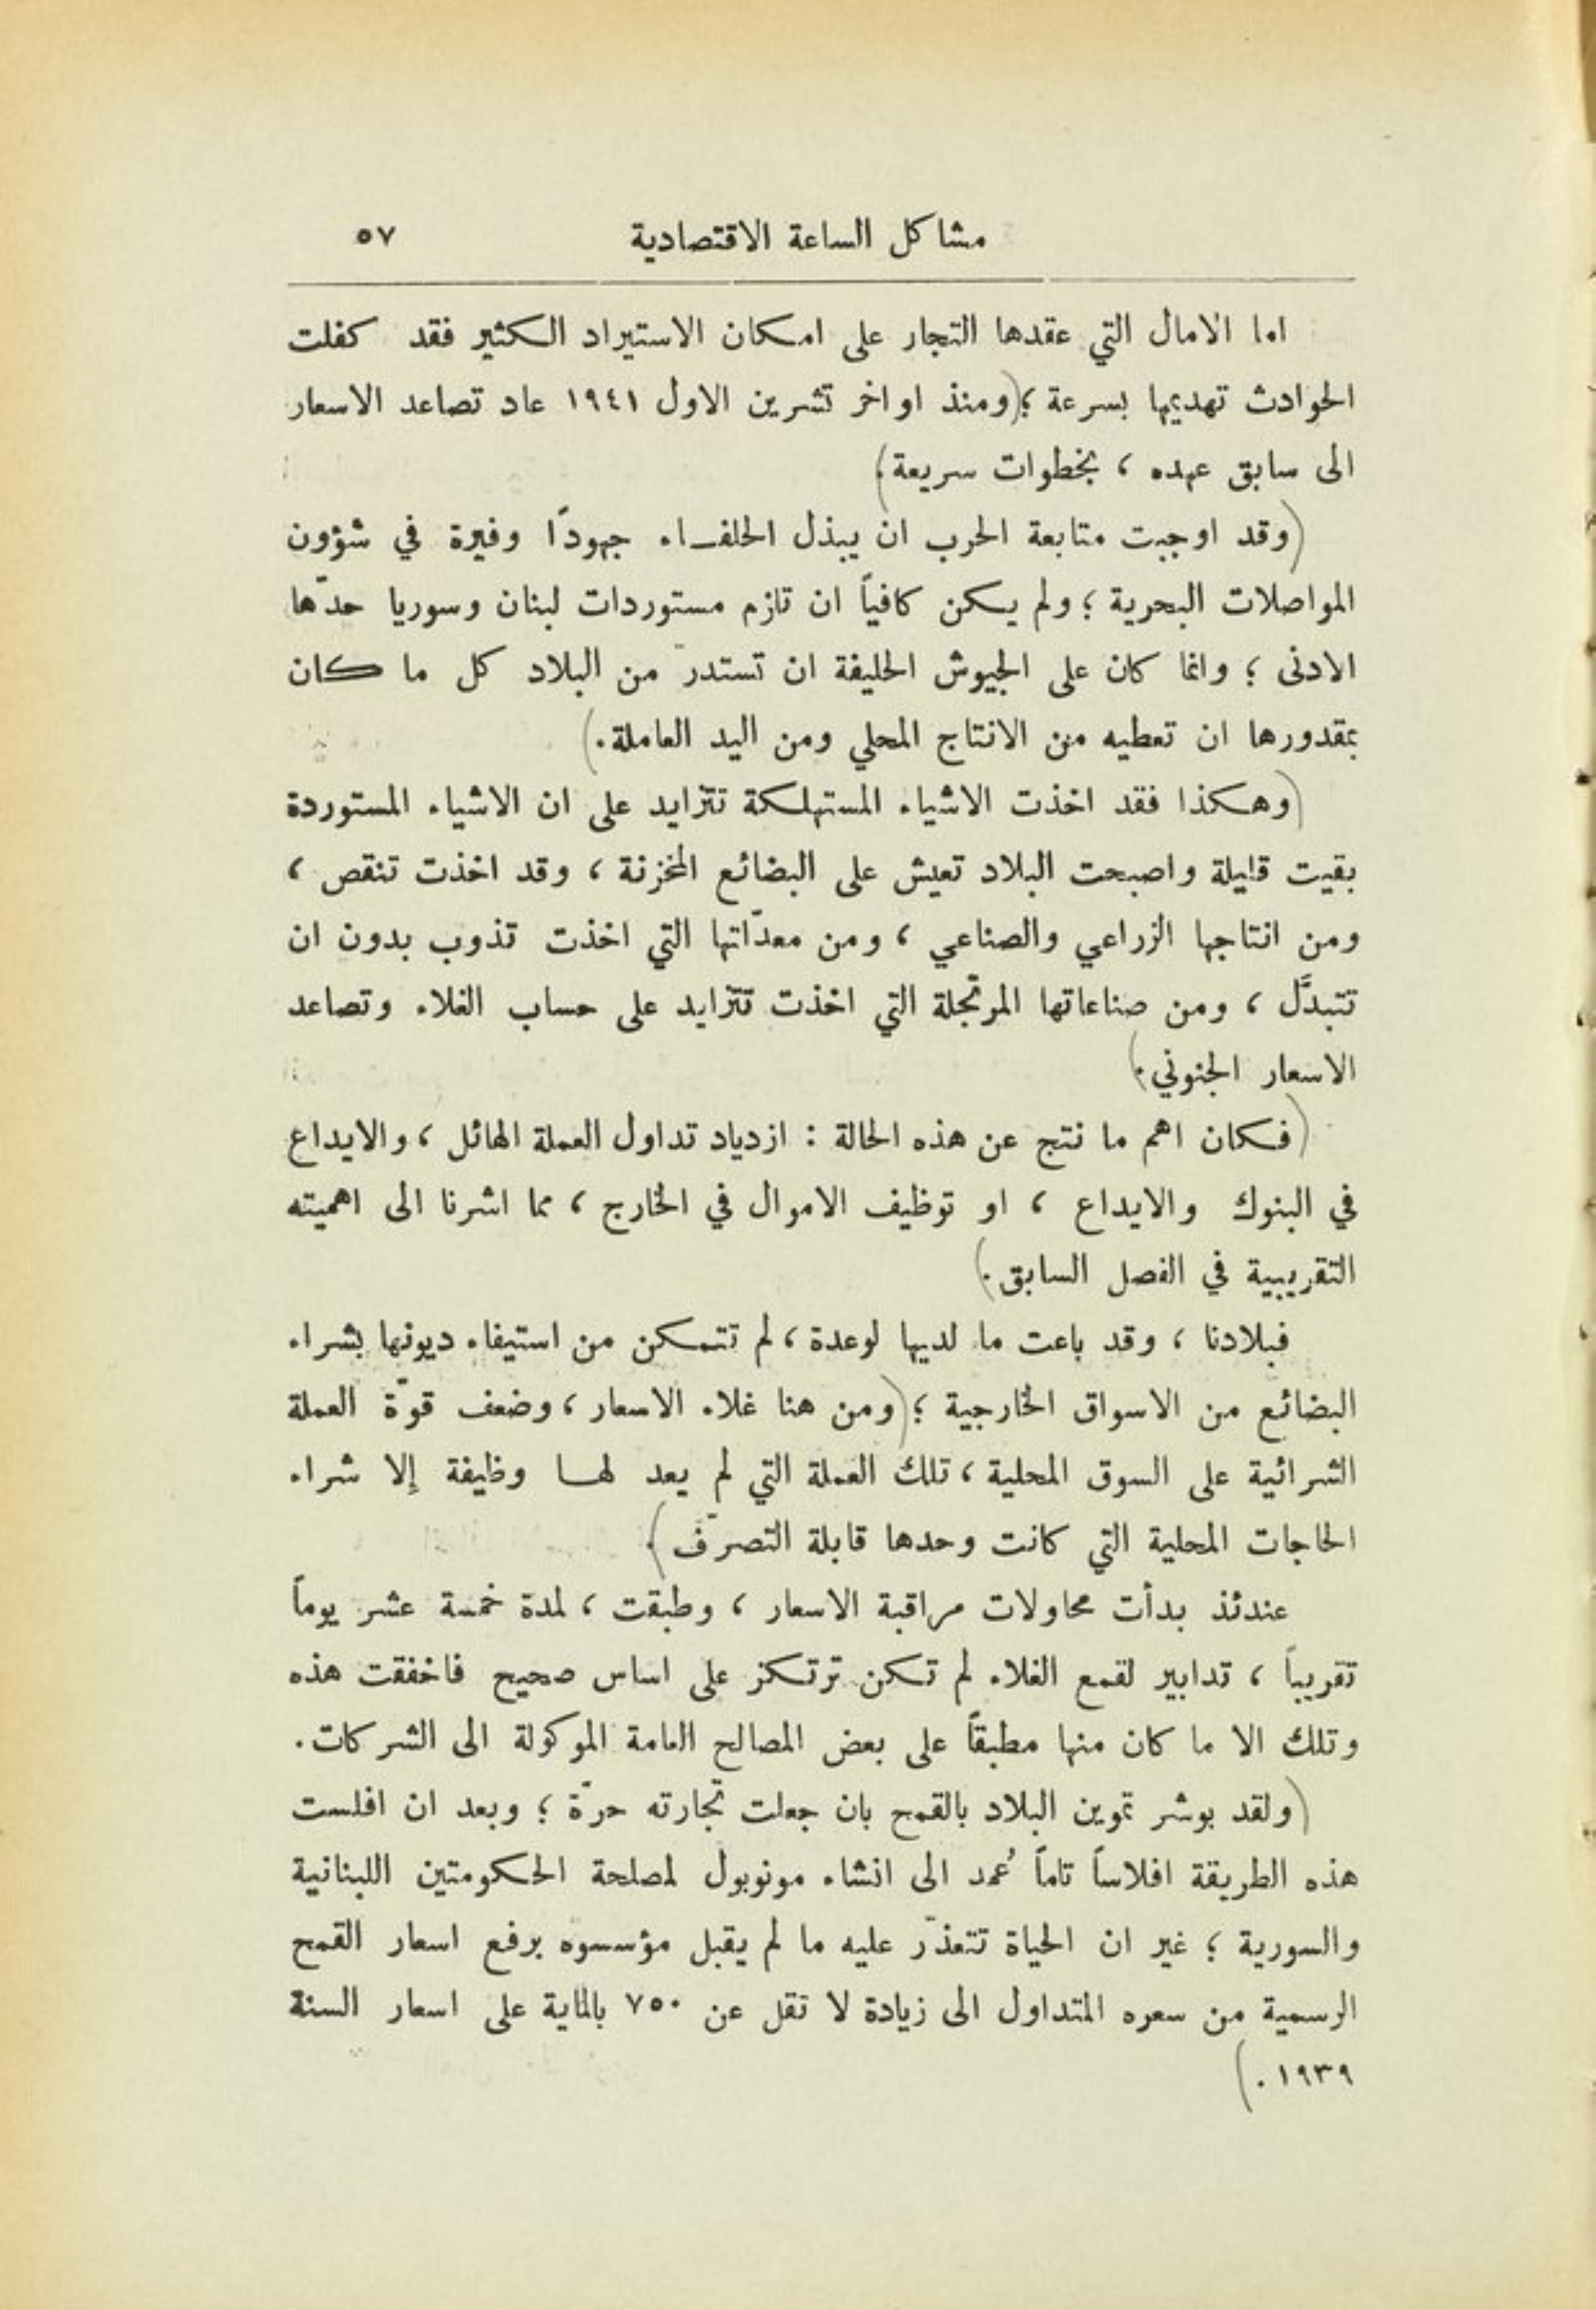 مشاكل الساعة الاقتصادية ٥٧
اما الامال التي عقدها التجار على امكان الاستيراد الكثير فقد كفلت
الحوادث تهديمها بسرعة ؛ (ومنذ اواخر تشرين الاول ١٩٤١ عاد تصاعد الاسعار
الى سابق عهده ، بخطوات سريعة.)
(وقد اوجبت متابعة الحرب ان يبذل الحلفاء جهودًا وفيرة في شؤون
المواصلات البحرية ؛ ولم يكن كافياً ان تازم مستوردات لبنان وسوريا حدّها
الادنى ؛ وانما كان على الجيوش الحليفة ان تستدرّ من البلاد كل ما كان
بمقدورها ان تعطيه من الانتاج المحلي ومن اليد العاملة.)
(وهكذا فقد اخذت الاشياء المستهلكة تتزايد على ان الاشياء المستوردة
بقيت قليلة واصبحت البلاد تعيش على البضائع المخزنة ، وقد اخذت تنقص ،
ومن انتاجها الزراعي والصناعي ، ومن معدّاتها التي اخذت تذوب بدون ان
تتبدَّل ، ومن صناعاتها المرتجلة التي اخذت تتزايد على حساب الغلاء وتصاعد
الاسعار الجنوني.)
(فكان اهم ما نتج عن هذه الحالة : ازدياد تداول العملة الهائل ، والايداع
في البنوك والايداع ، او توظيف الاموال في الخارج ، مما اشرنا الى اهميته
التقريبية في الفصل السابق.)
فبلادنا ، وقد باعت ما لديها لوعدة ، لم تتمكن من استيفاء ديونها بشراء
البضائع من الاسواق الخارجية ؛ (ومن هنا غلاء الاسعار ، وضعف قوّة العملة
الشرائية على السوق المحلية ، تلك العملة التي لم يعد لها وظيفة إلا شراء
الحاجات المحلية التي كانت وحدها قابلة التصرّف.)
عندئذ بدأت محاولات مراقبة الاسعار ، وطبقت ، لمدة خمسة عشر يوماً
تقريباً ، تدابير لقمع الغلاء لم تكن ترتكز على اساس صحيح فاخفقت هذه
وتلك الا ما كان منها مطبقاً على بعض المصالح العامة الموكولة الى الشركات.
(ولقد بوشر تموين البلاد بالقمح بان جعلت تجارته حرّة ؛ وبعد ان افلست
هذه الطريقة افلاساً تاماً عُمد الى انشاء مونوبول لمصلحة الحكومتين اللبنانية
والسورية ؛ غير ان الحياة تتعذّر عليه ما لم يقبل مؤسسوه برفع اسعار القمح
الرسمية من سعره المتداول الى زيادة لا تقل عن ٧٥٠ بالماية على اسعار السنة
١٩٣٩ .)